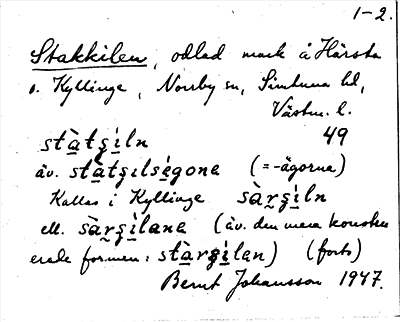 1-2.
Stakkilen, odlad mark å Härsta
o. Kyllinge, Norrby sn, Simtuna hd,
Västm. l.
stàtşìln 49
äv. stàtşılségone (=-ägorna)
Kallas i Kyllinge sàrşìln
ell. sàrşìlane (äv. den mera konstru
erade formen: stàrşìlan) (forts)
Bernt Johansson 1947.